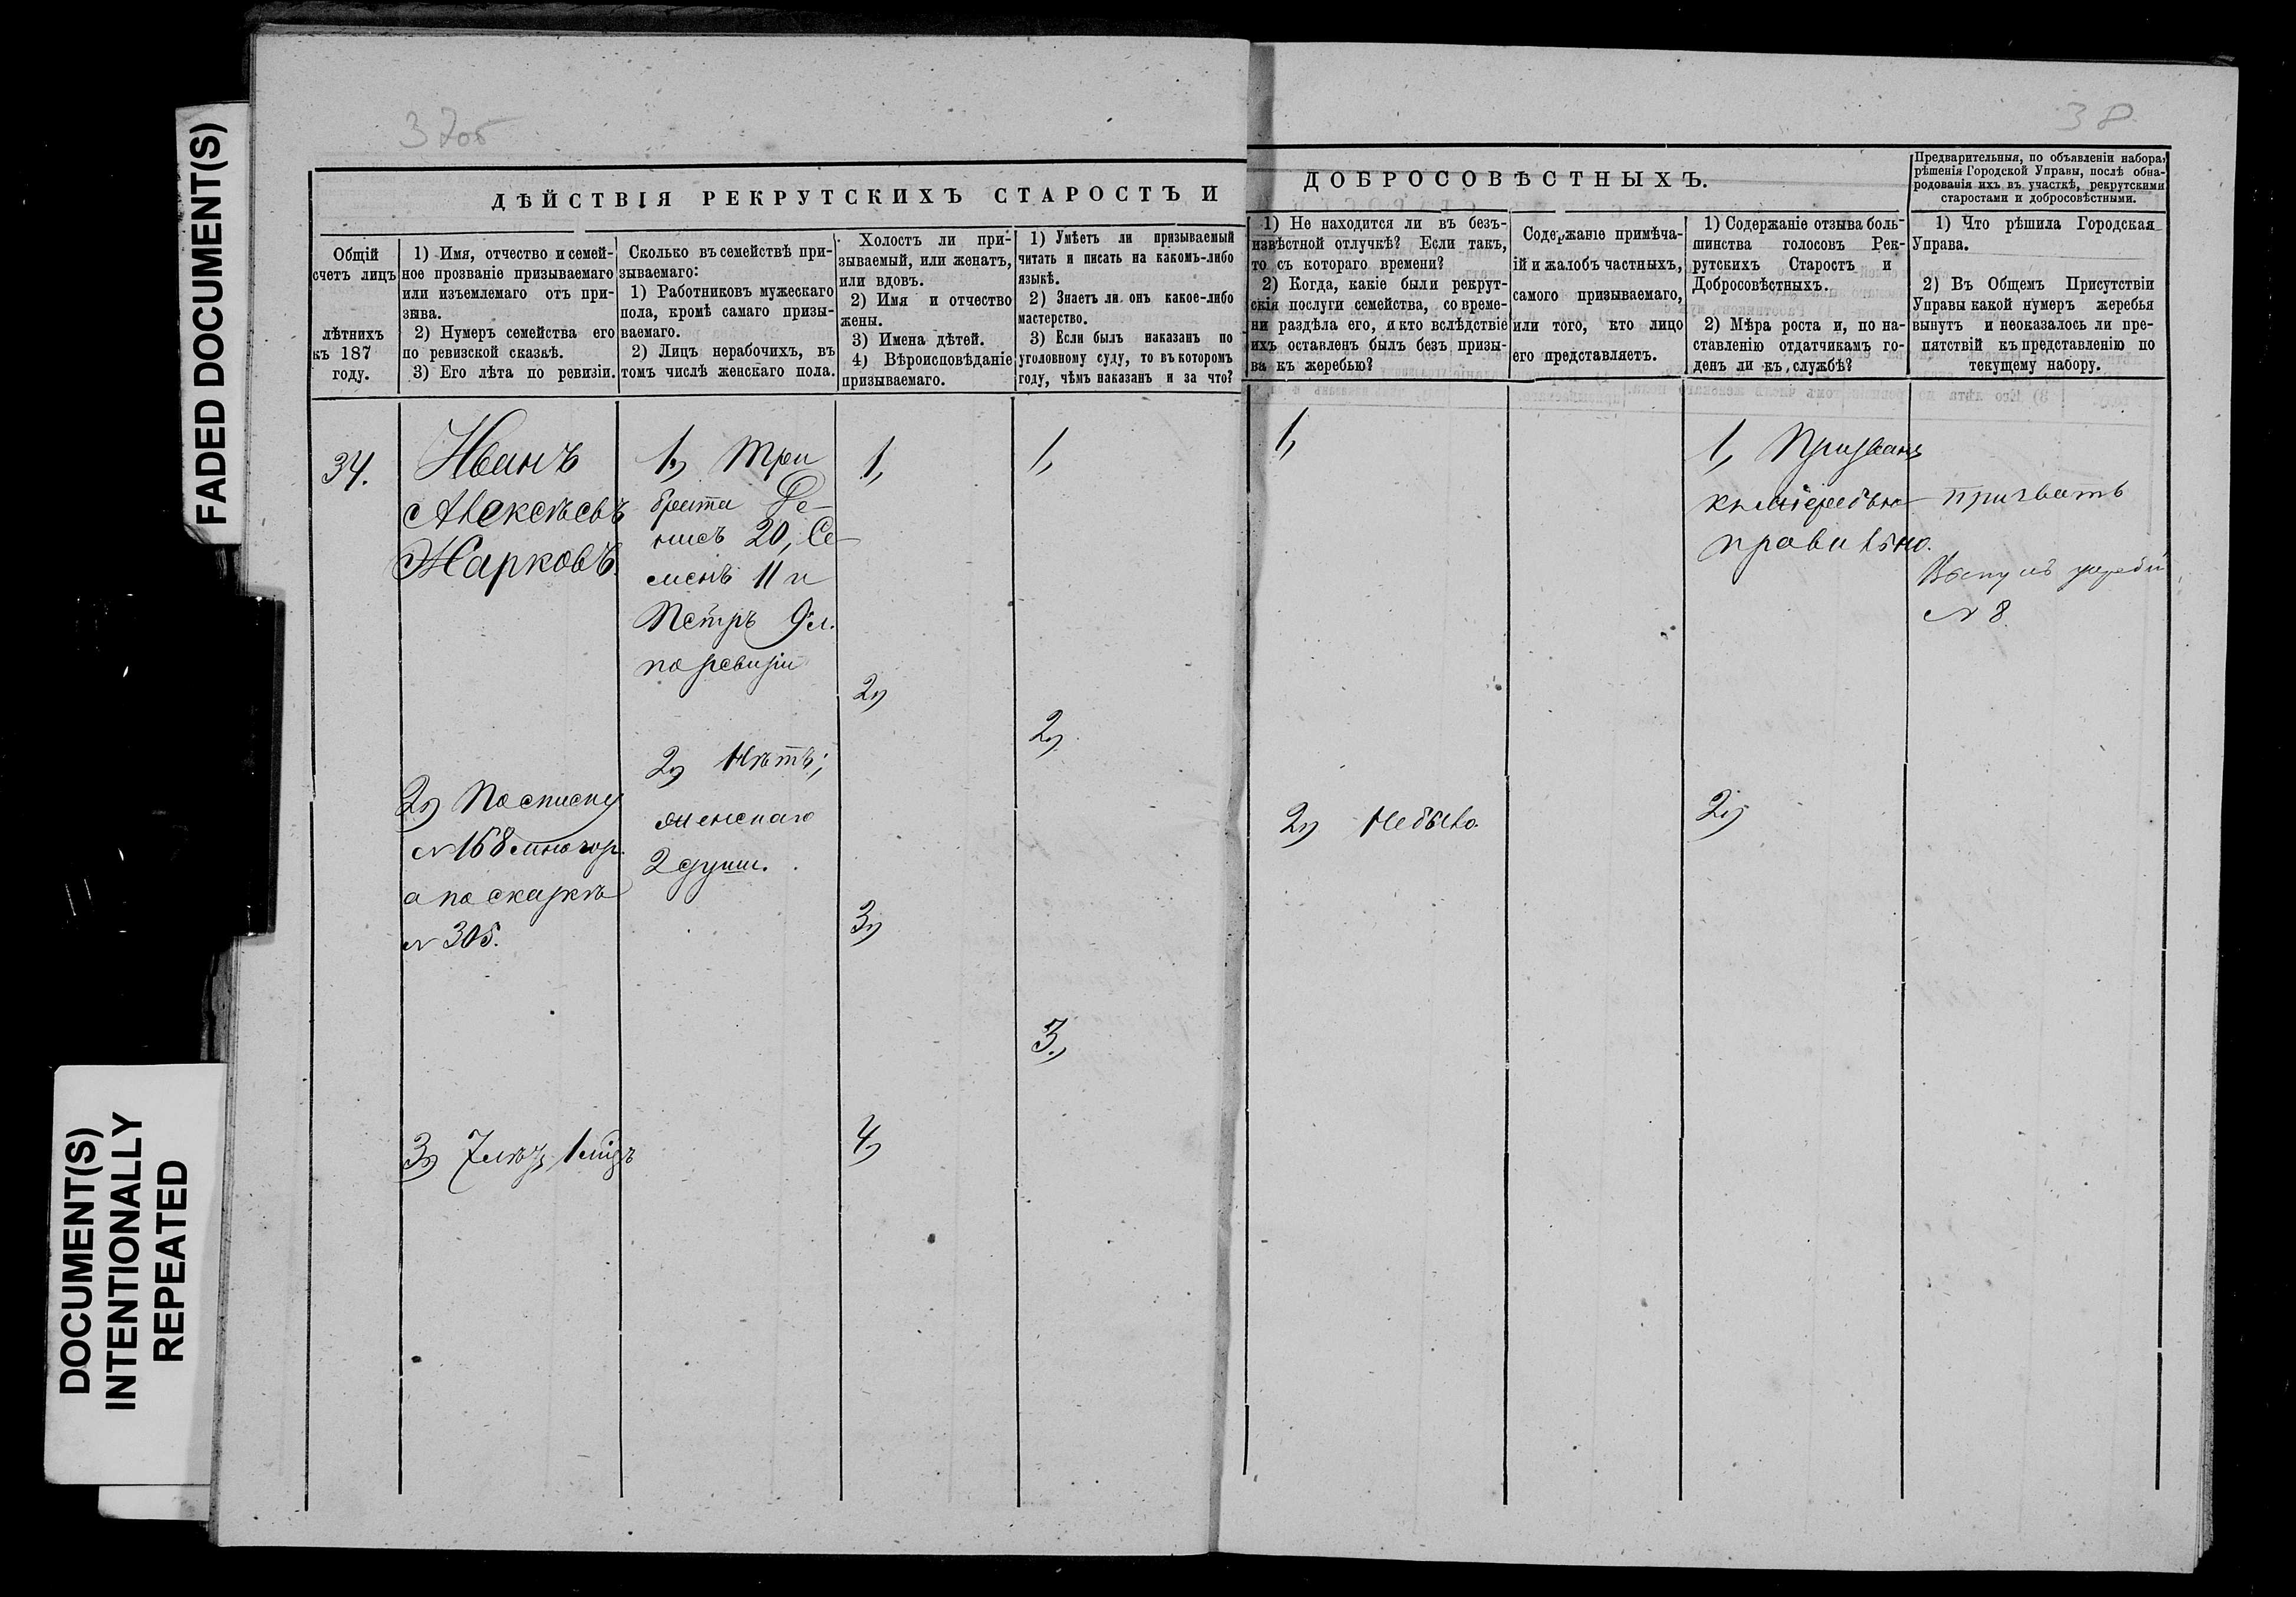 FADED DOCUMENT(S)
DOCUMENT(S)
INTENTIONALLY
REPEATED
37об
38
ДѢЙСТВІЯ РЕКРУТСКИХЪ СТАРОСТЪ И
ДОБРОСОВѢСТНЫХЪ.
Предварительныя, по объявленіи набора,
рѣшенія Городской Управы, послѣ обна-
родованія ихъ въ участкѣ, рекрутскими
старостами и добросовѣстными.
Общій
счетъ лицъ
лѣтнихъ
къ 187
году.
1) Имя, отчество и семей-
ное прозваніе призываемаго
или изъемлемаго отъ при-
зыва.
2) Нумеръ семейства его
по ревизской сказкѣ.
3) Его лѣта по ревизіи.
Сколько въ семействѣ при-
зываемаго:
1) Работниковъ мужескаго
пола, кромѣ самаго призы-
ваемаго.
2) Лицъ нерабочихъ, въ
томъ числѣ женскаго пола.
Холостъ ли при-
зываемый, или женатъ,
или вдовъ.
2) Имя и отчество
жены.
3) Имена дѣтей.
4) Вѣроисповѣданіе
призываемаго.
1) Умѣетъ ли призываемый
читать и писать на какомъ-либо
языкѣ.
2) Знаетъ ли онъ какое-либо
мастерство.
3) Если былъ наказанъ по
уголовному суду, то въ которомъ
году, чѣмъ наказанъ и за что?
1) Не находится ли въ безъ-
извѣстной отлучкѣ? Если такъ,
то съ котораго времени?
2) Когда, какіе были рекрут-
скія послуги семейства, со време-
ни раздѣла его, и кто вслѣдствіе
ихъ оставленъ былъ безъ призы-
ва къ жеребью?
Содержаніе примѣча-
ій и жалобъ частныхъ,
самого призываемаго,
или того, кто лицо
его представляетъ.
1) Содержаніе отзыва боль-
шинства голосовъ Рек-
рутскихъ Старостъ и
Добросовѣстныхъ.
2) Мѣра роста и, по на-
ставленію отдатчикамъ го-
денъ ли къ службѣ?
1) Что рѣшила Городская
Управа.
2) Въ Общемъ Присутствіи
Управы какой нумеръ жеребья
вынутъ и неоказалось ли пре-
пятствій къ представленію по
текущему набору.
34.
Иванъ
Алексѣевъ
Жарковъ.
2) По списку
№ 168
а по сказкѣ
№ 305.
3) 7
1) Три
брата Де-
нисъ 20, Се-
менъ 11 и
Петръ 9 л.
по ревизіи
2) Нѣтъ;
женскаго
2 души.
1,
2)
3)
4)
1,
2)
3,
1,
2) Не было.
1, Призванъ
къ жеребью
правильно.
2)
призвать
Вынулъ жребій
№ 8.